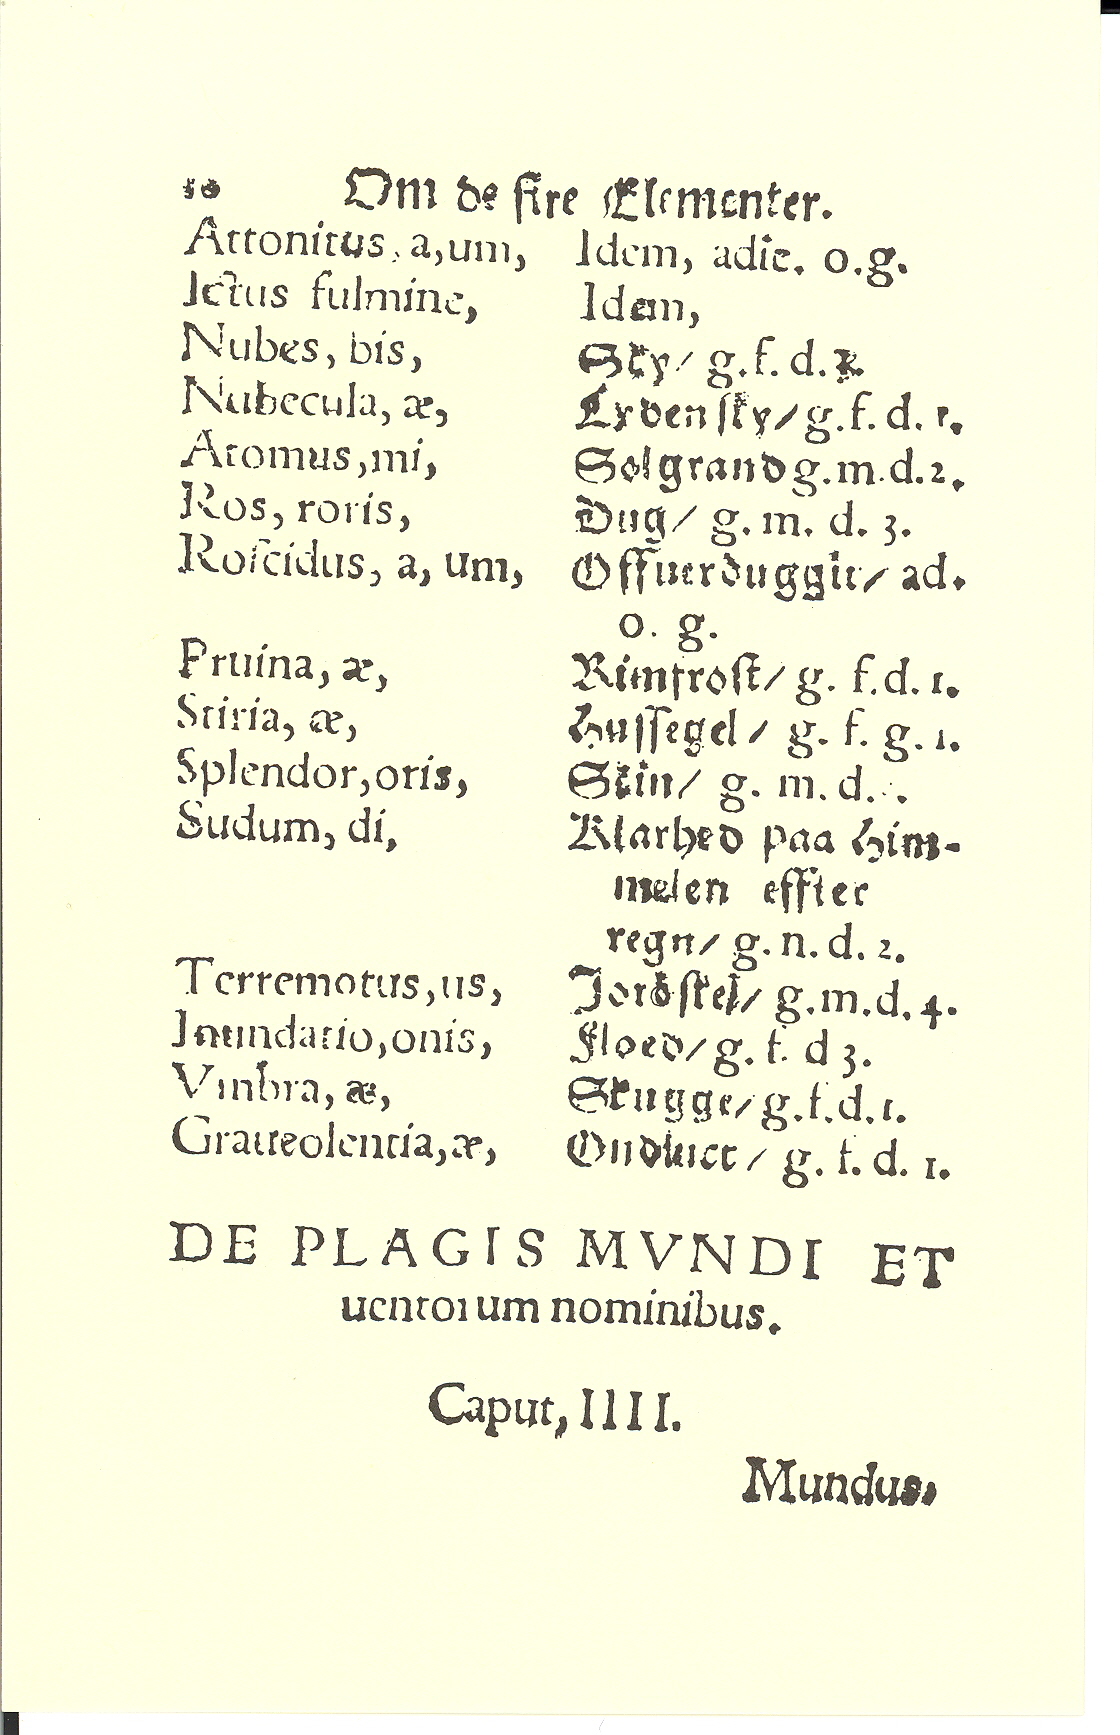 10 Om de fire Elementer.
Attonitus, a,um, Idem, adiec. o.g.
Ictus fulmine, Idem,
Nubes, bis, Sky/ g.f. d.
Nubecula, æ, Lydensky/ g.f. d. 1.
Atomus,mi, Solgrand g.m.d.2.
Ros, roris, Dug/ g. m. d. 3.
Roſcidus, a, um, Offuerduggit/ ad.
o. g.
Pruina, æ, Rimfroſt/ g. f.d. 1.
Stiria, æ, Huſſegel/ g. f. g. 1.
Splendor,oris, Skin/ g. m. d.
Sudum, di, Klarhed paa Him-
melen effter
regn/ g. n. d. 2.
Terremotus,us, Jordſkel/ g.m.d. 4.
Inundatio,onis, Floed/ g. f. d 3.
Vmbra, æ, Skugge/ g.f.d.1.
Graueolentia,æ, g. f. d. 1.
DE PLAGIS MVNDI ET
uentorum nominibus.
Caput, IIII.
Mundus,